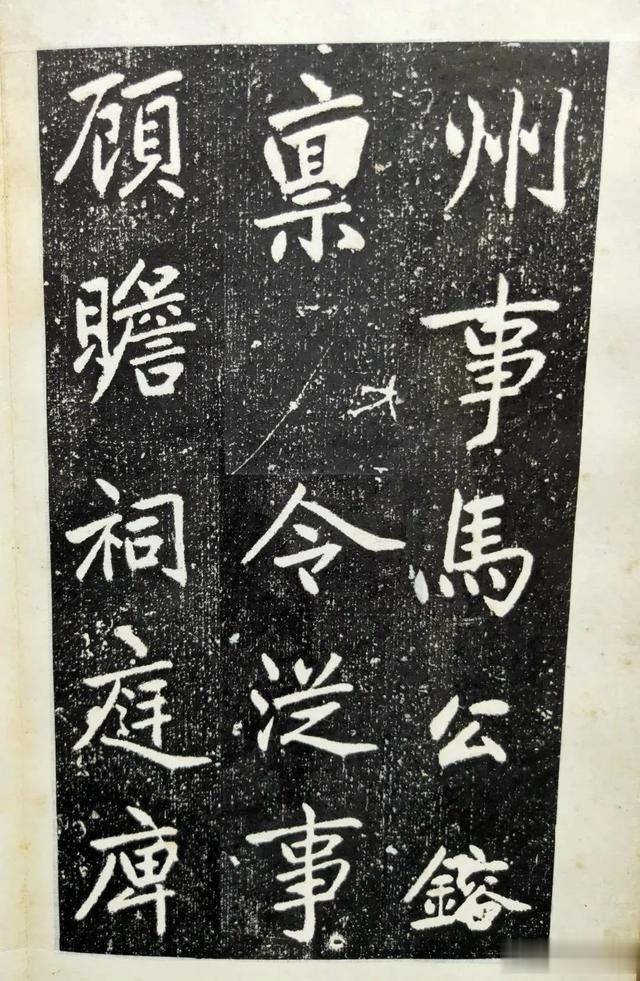 州事馬公鎔
稟令從事
顧瞻祠庭庳